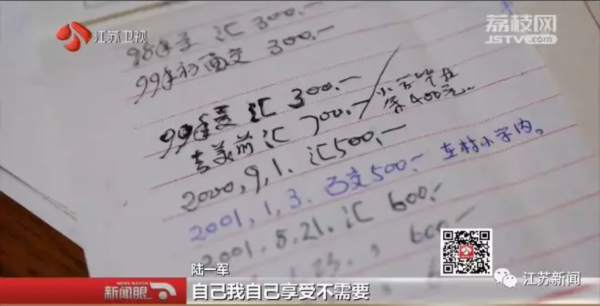 江苏卫视
荔枝网
JSTV.com
98年 汇 300.-
99年初面交 300.-
99年夏汇 300.-
去美前汇 700.-
2000,9,1. 汇500.-
2001,1,3. 面交500.- 在村小学内。
2001.8.21. 汇 600.-
600.-
陆一军
新闻眼
自己我自己享受不需要
江苏新闻